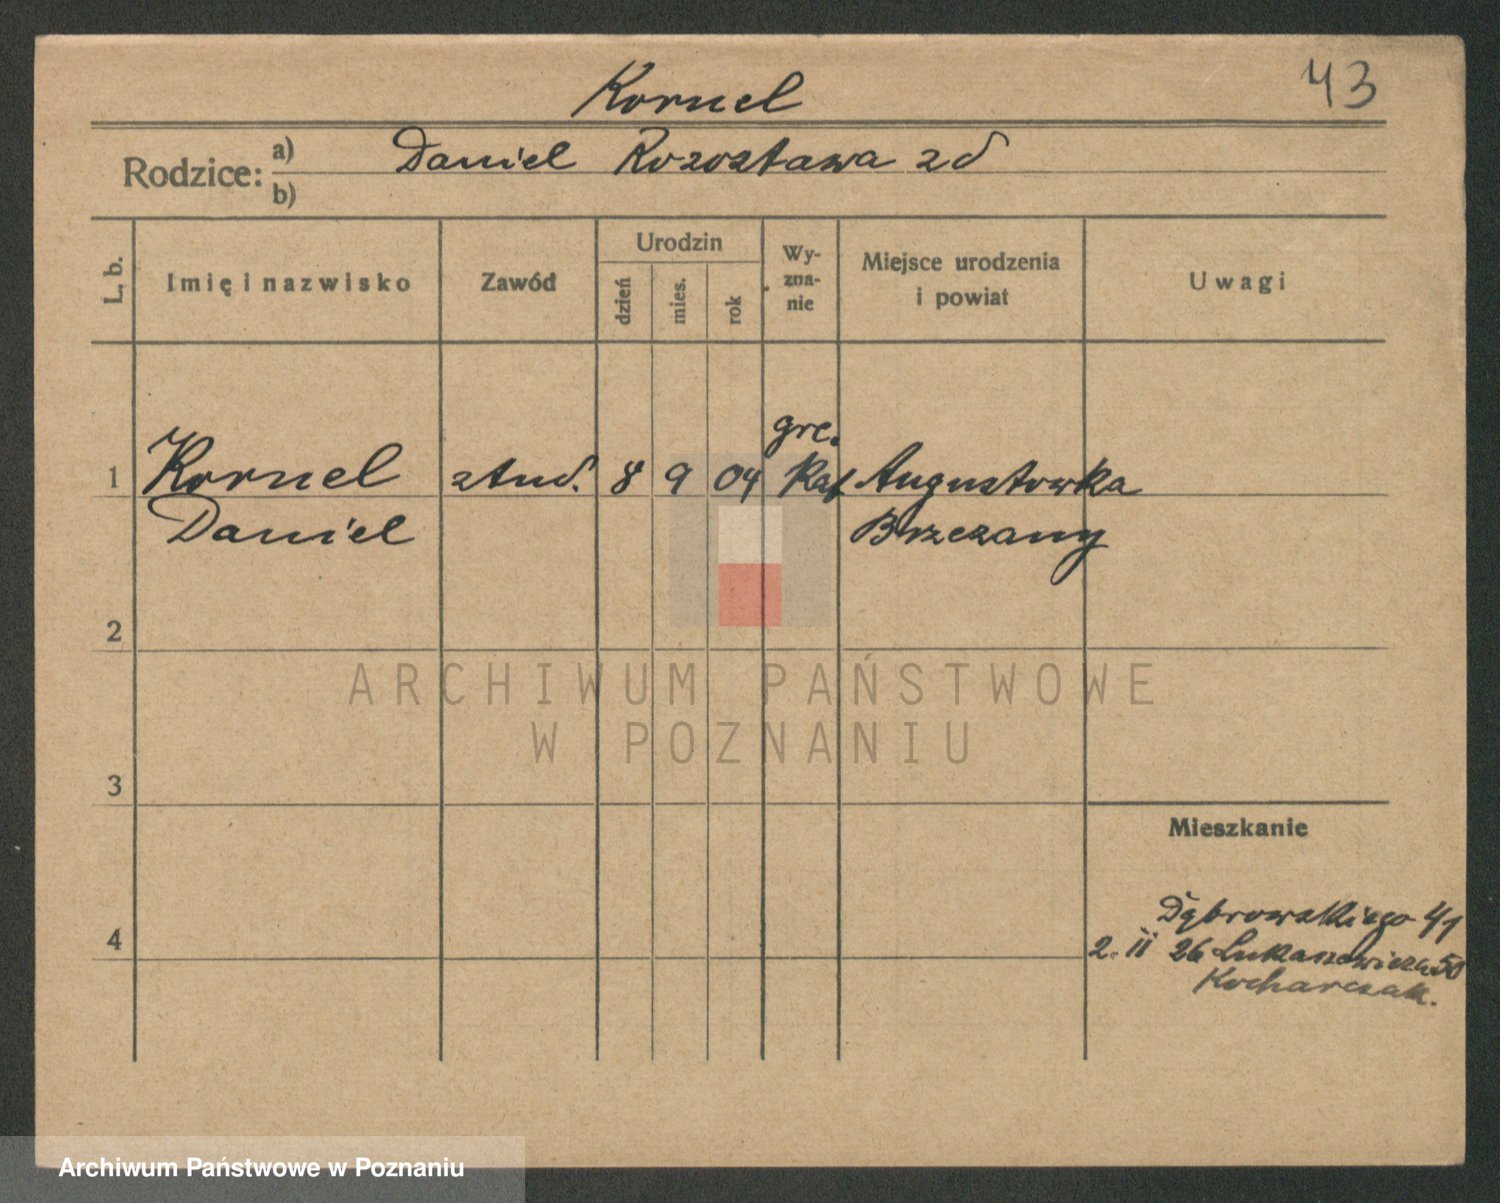 43
Kornel
Rodzice: a) Daniel Rozostawa zd
b)
L. b. Imię i nazwisko Zawód Urodzin dzień mies. rok Wy-zna-nie Miejsce urodzenia i powiat Uwagi
gre.
1 Kornel stud. 8 9 04 Kat Augustowka
Daniel Brzezany
2
ARCHIWUM PAŃSTWOWE
W POZNANIU
3
Mieszkanie
Dąbrowskiego 41
4
2. II 26 Łukaszewicza 50
Kocharczak.
Archiwum Państwowe w Poznaniu